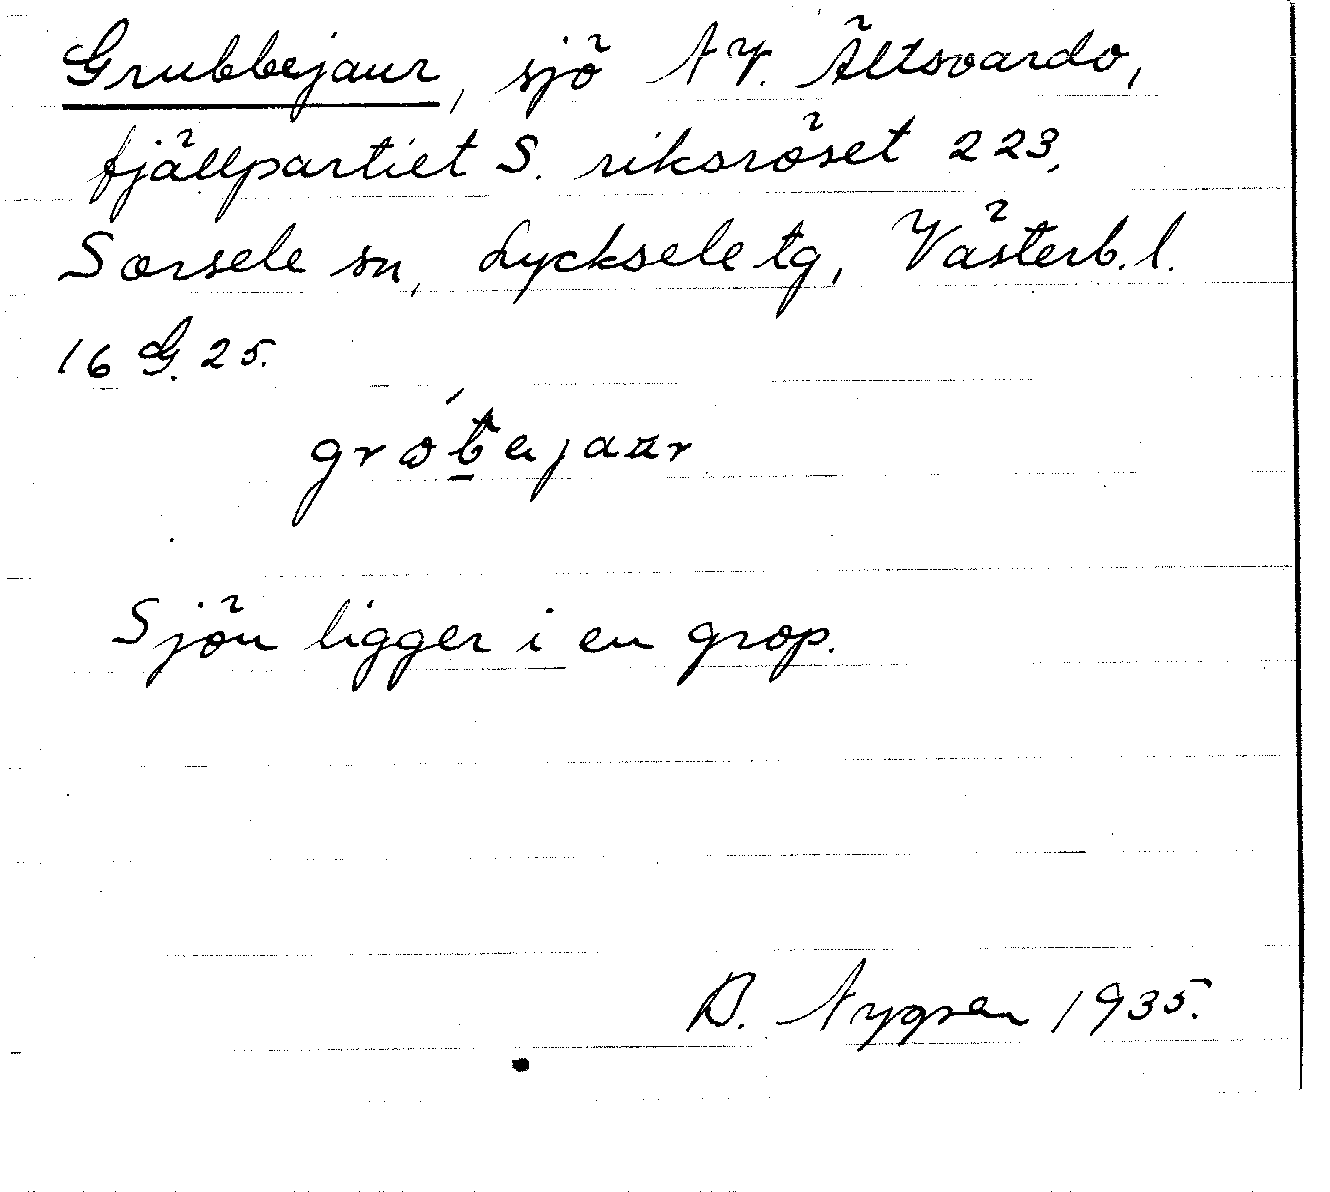 Grubbejaur, sjö NV. Ältsvardo,
fjällpartiet S. riksröset 223,
Sorsele sn, Lycksele tg, Västerb. l.
16 G. 25.
Sjön ligger i en grop.
B. Nygren 1935.